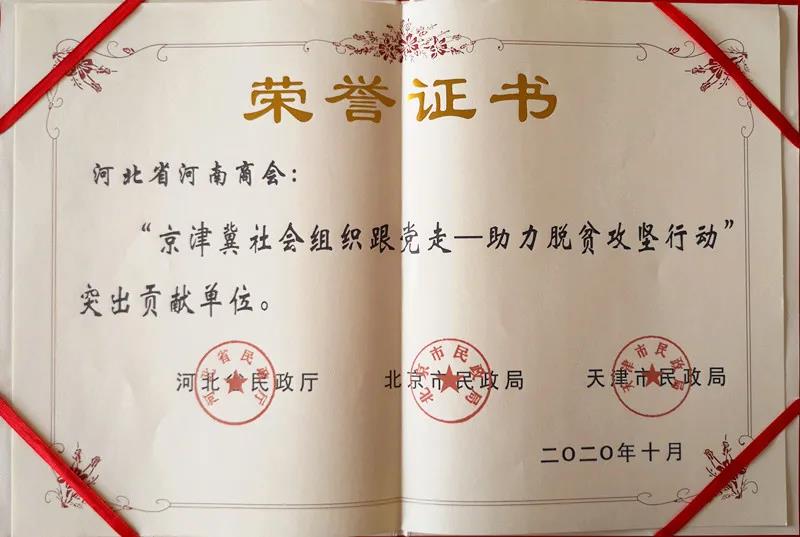 荣誉证书
河北省河南商会：
“京津冀社会组织跟党走—助力脱贫攻坚行动”
突出贡献单位。
河北省民政厅 北京市民政局 天津市民政局
河北省民政厅
北京市民政局
天津市民政局
二〇二〇年十月